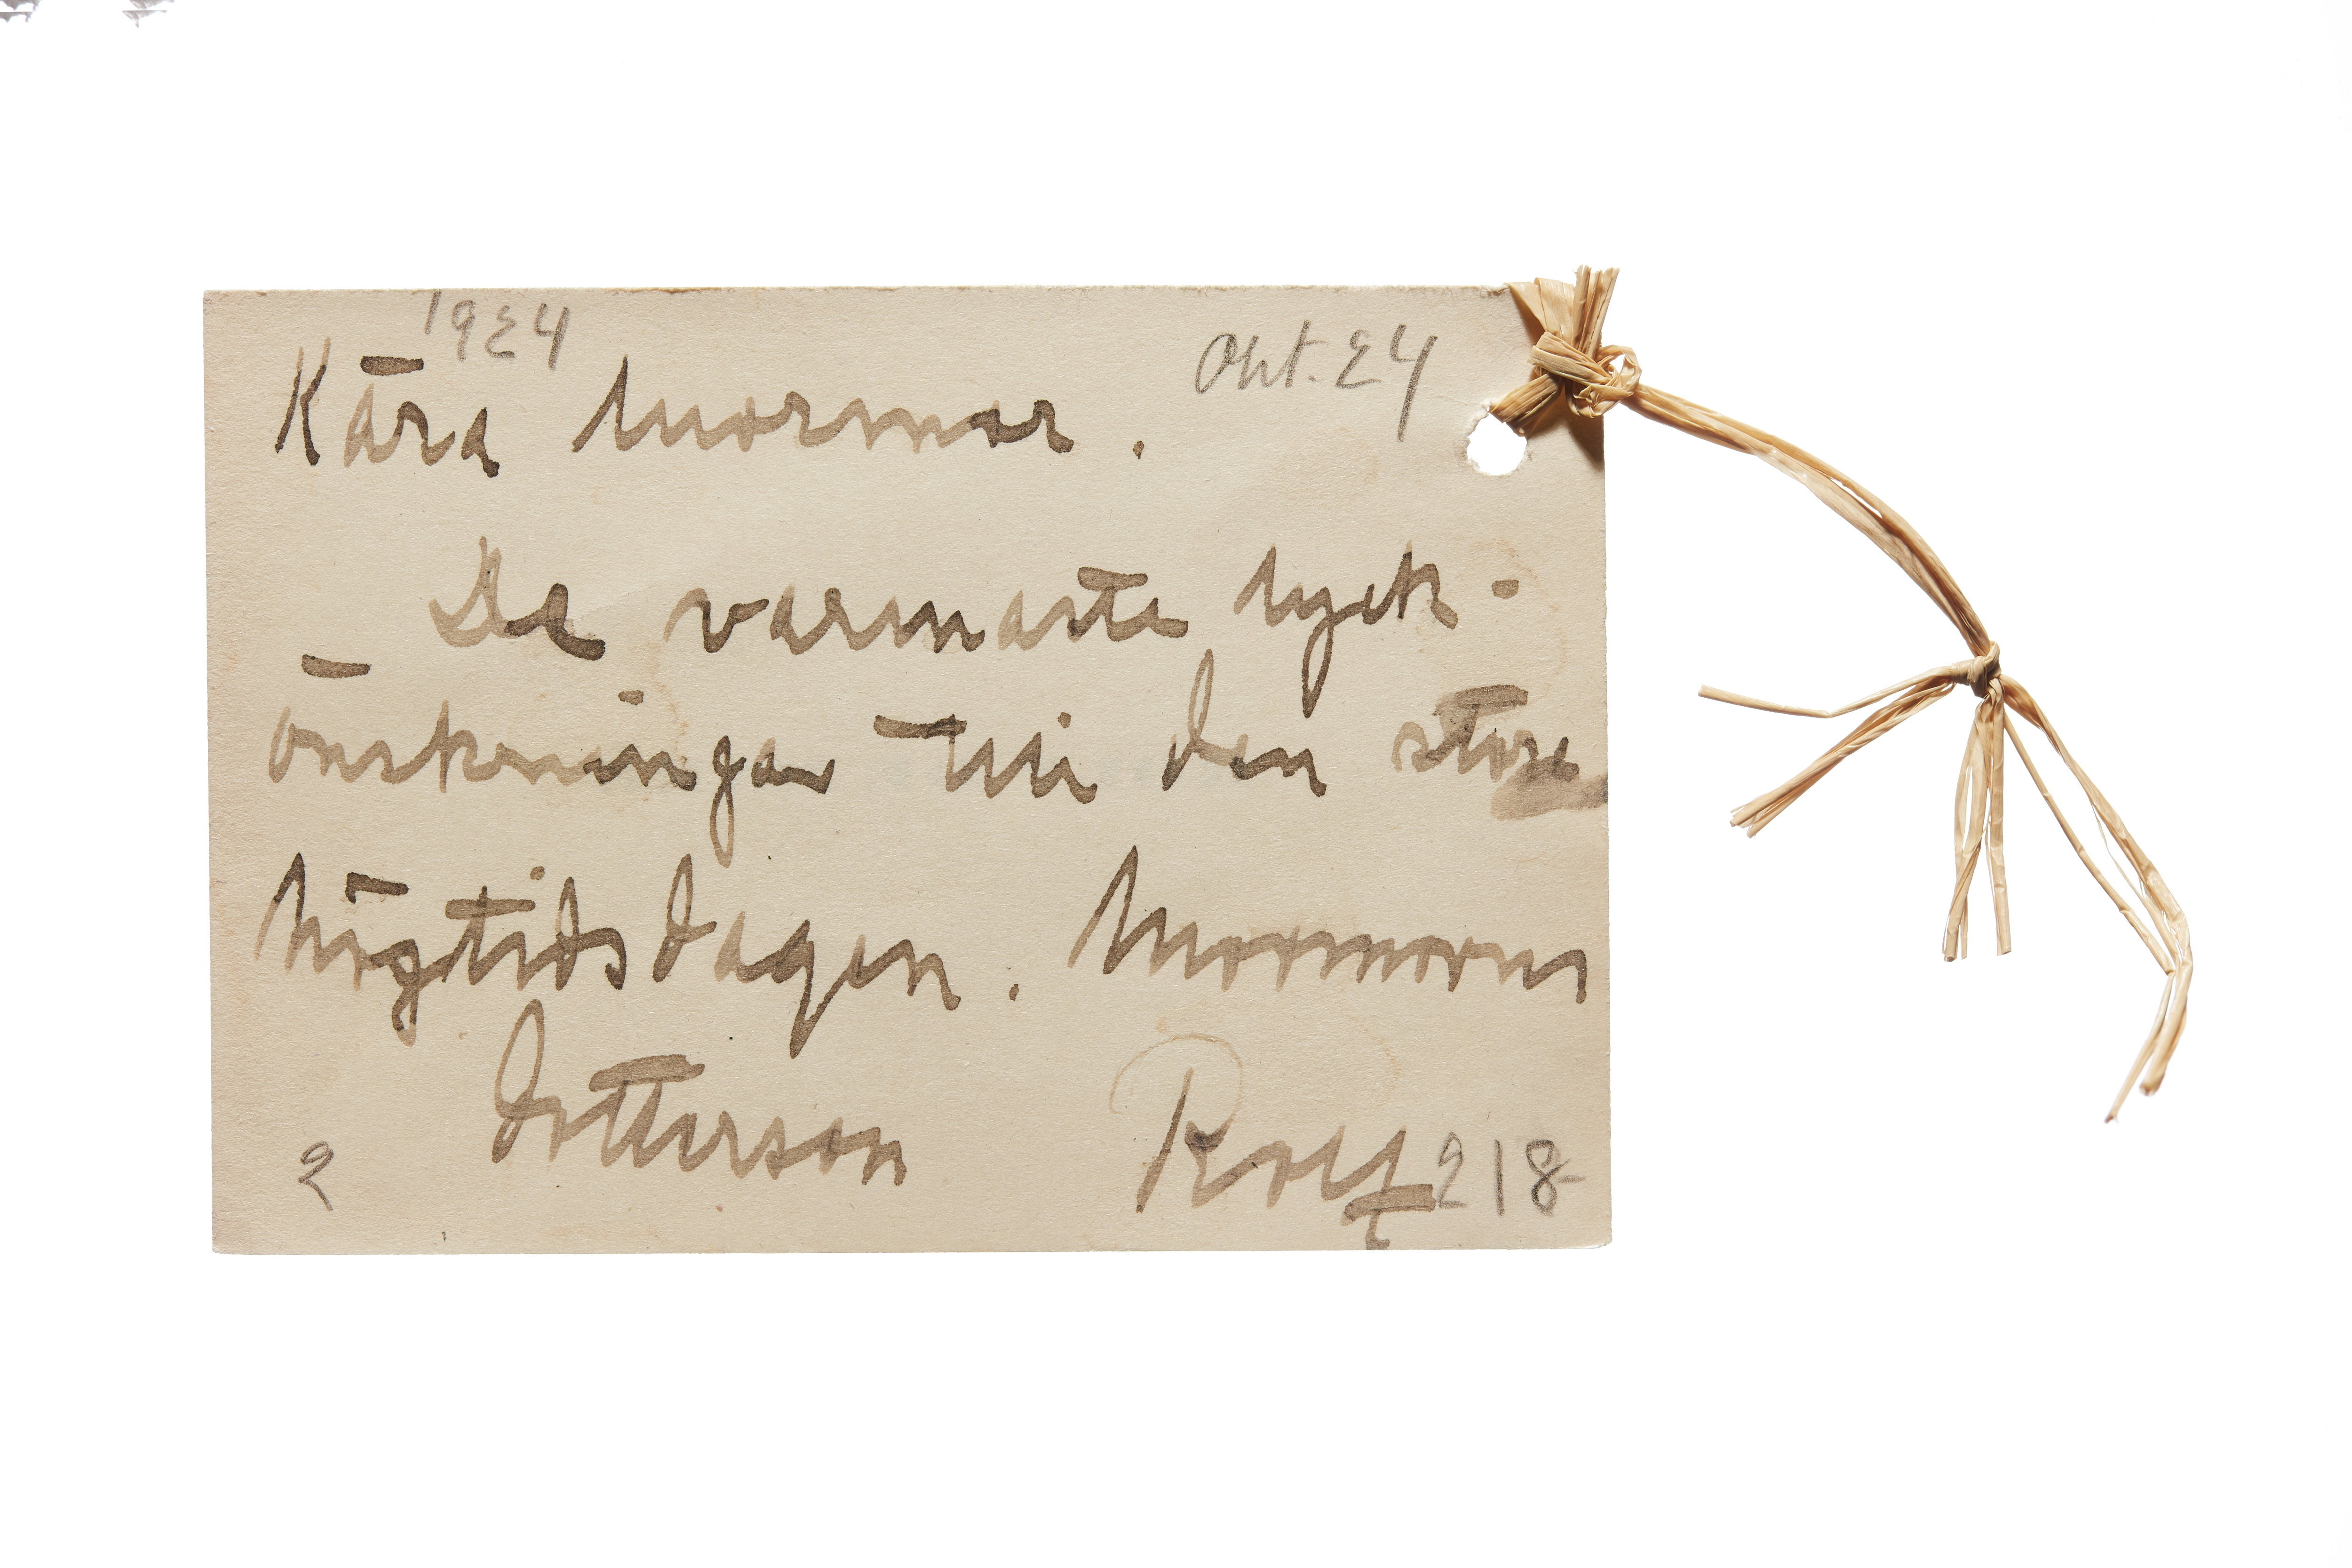 1924
Okt. 24
Kära Mormor.
De varmaste lyck-
önskningar till den stora
högtidsdagen. Mormorns
dotterson Rolf
2
218-